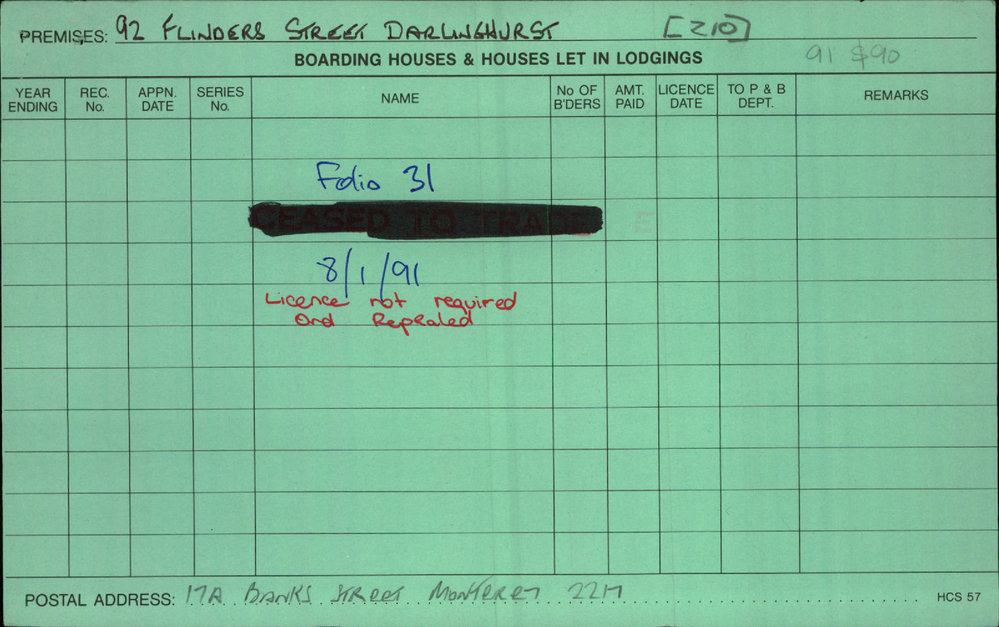 PREMISES: 92 FLINDERS STREET DARLINGHURST [210]
BOARDING HOUSES & HOUSES LET IN LODGINGS 91 $90
YEAR ENDING REC. No. APPN. DATE SERIES No. NAME No OF B'DERS AMT. PAID LICENCE DATE TO P & B DEPT. REMARKS
Folio 31
CEASED TO TRADE
8/1/91
Licence not required
Ord Repealed
POSTAL ADDRESS: 17A BANKS STREET MONTEREY 2217 HCS 57